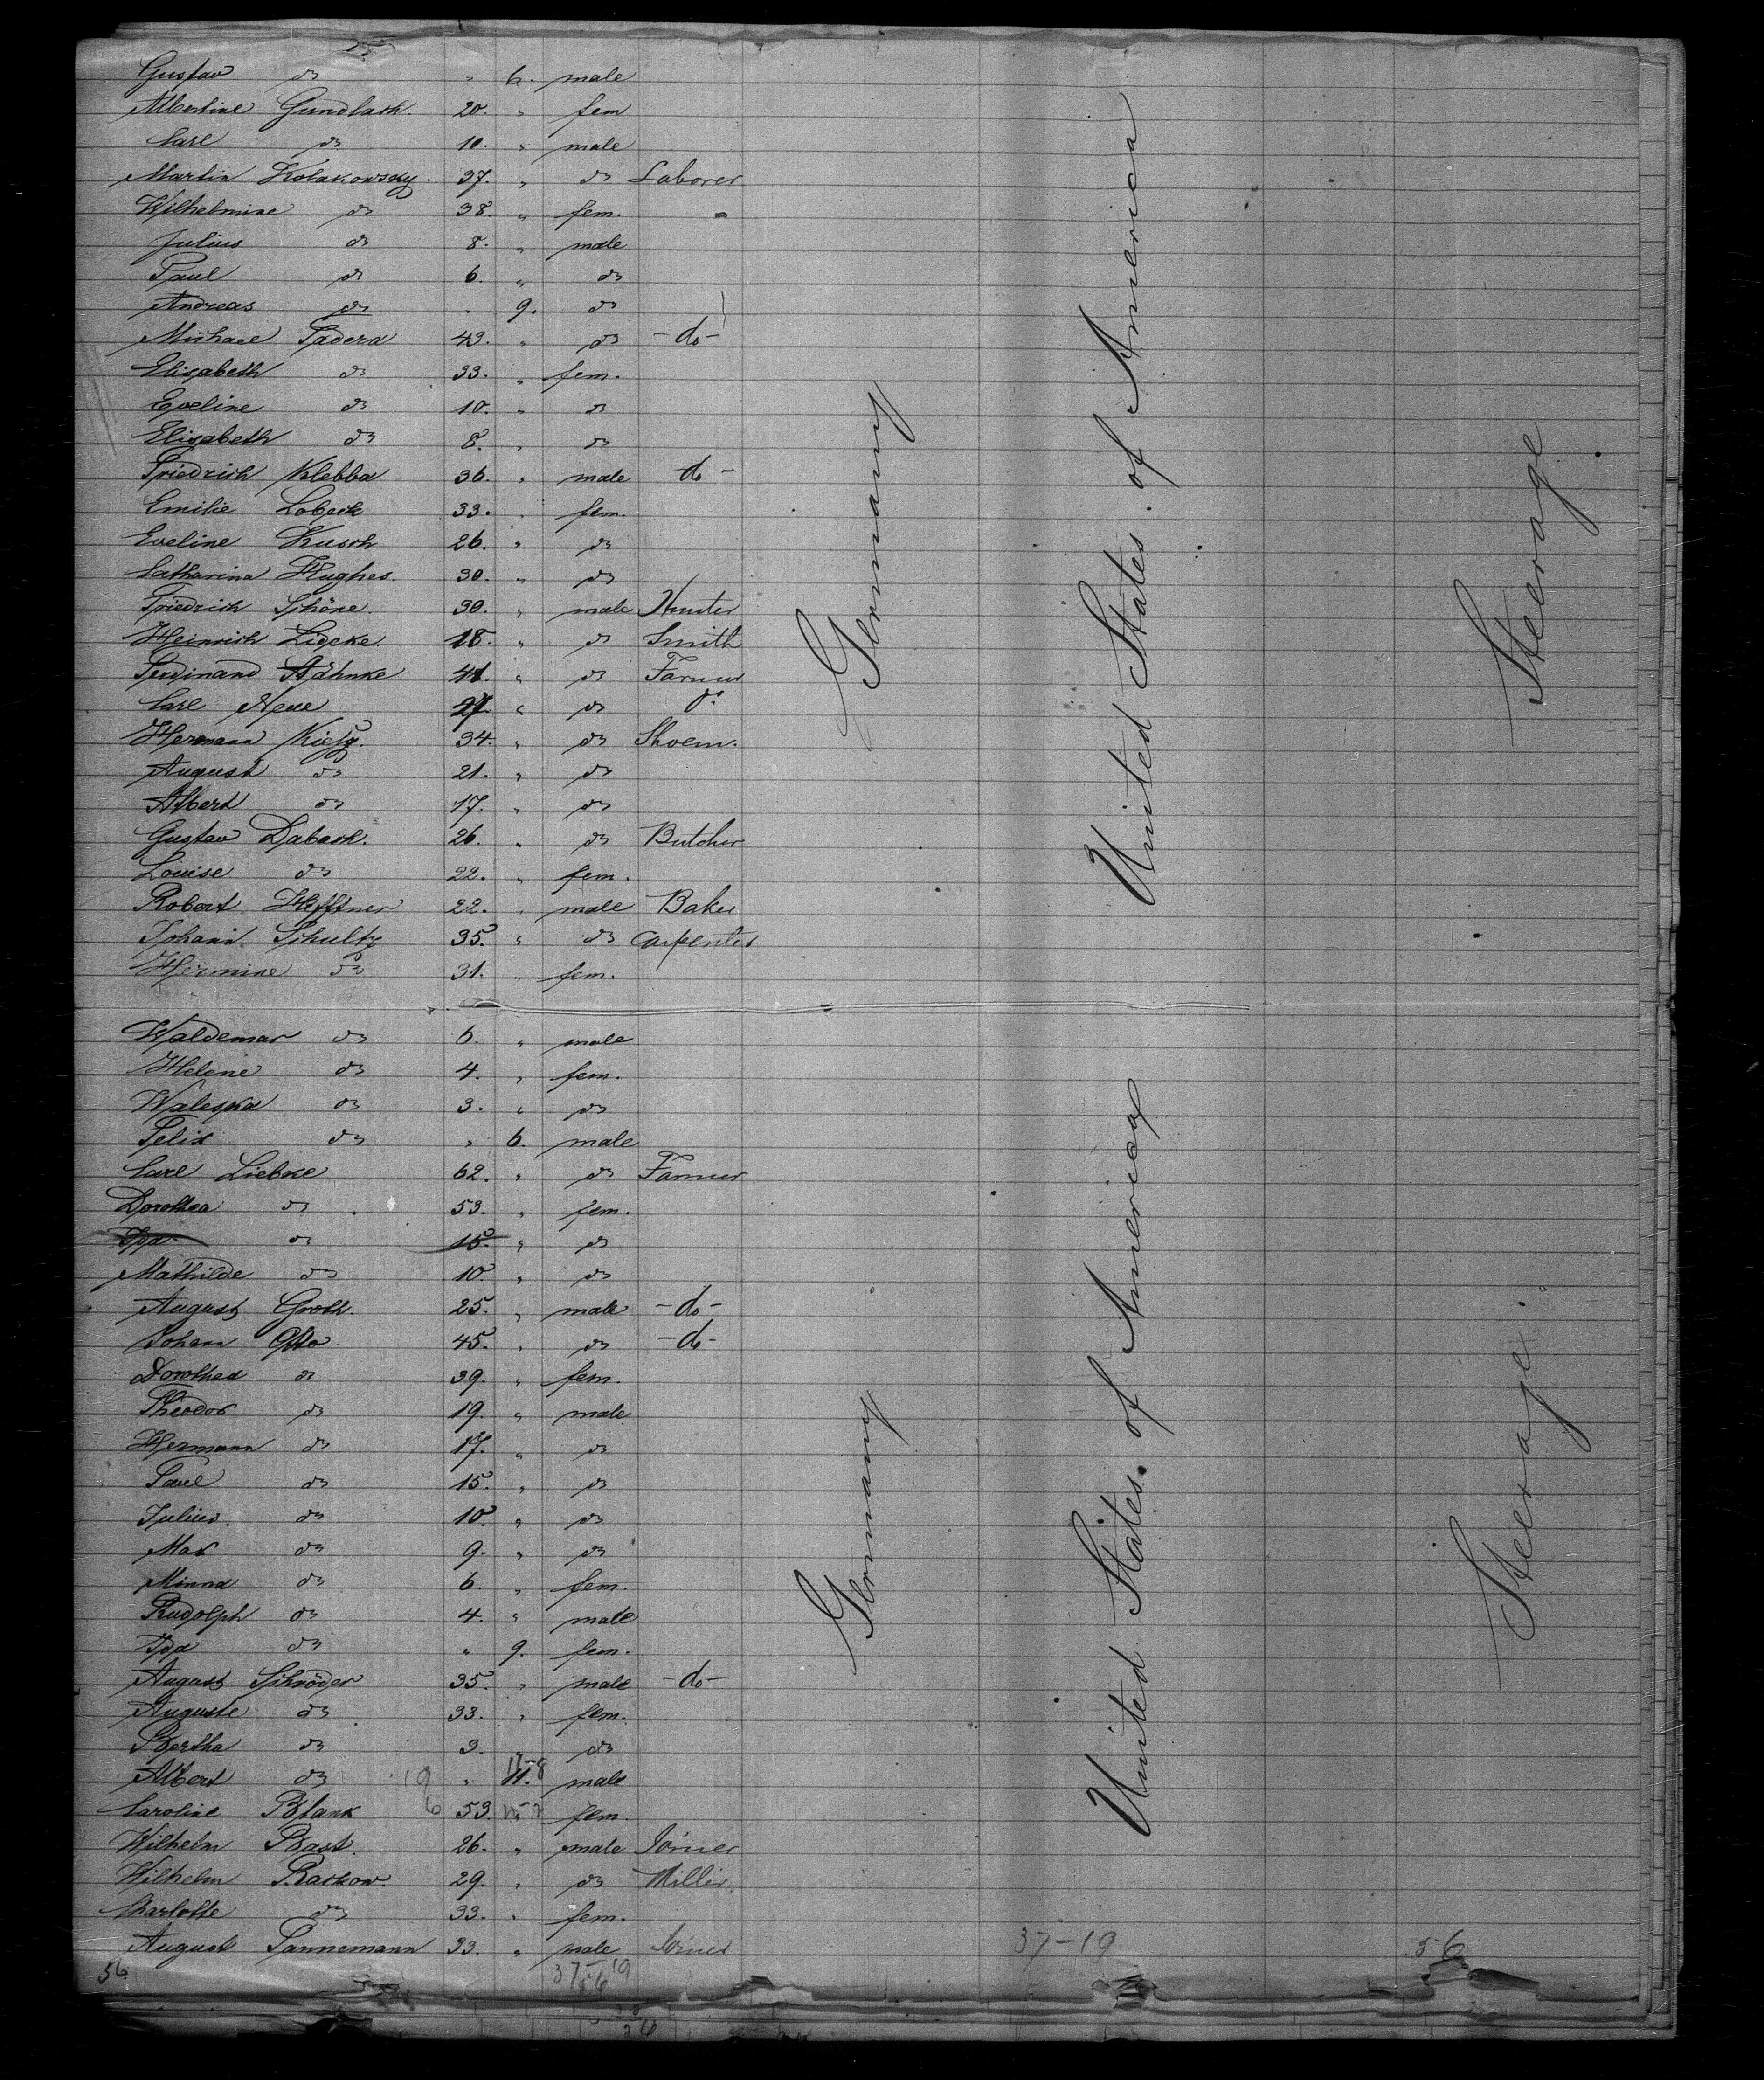 Gustav do " 6. male
Albertine Gundlach. 20. " fem
Carl do 10. " male
Martin Kolakowsky. 37. " do Laborer
Wilhelmine do 38. " fem. "
Julius do 8. " male
Paul do 6. " do
Andreas do " 9. do
Michael 43. " do -do-
Elisabeth do 33. " fem.
Eveline do 10. " do
Elisabeth do 8. " do
Friedrich Klebba 36. " male do -
Emilie Lobeck 33. " fem.
Eveline Kusch 26. " do
Catharina Hughes. 30. " do
Friedrich Schöne. 30. " male Hunter
Heinrich Lideke. 18. " do Smith
Ferdinand 41. " do Farmer
Carl Neue 27. " do do
Hermann 34. " do Shoem.
August do 21. " do
Albert do 17. " do
Gustav Daback. 26. " do Butcher
Louise do 22. " fem.
Robert Hefftner 22. " male Baker
Johann Schultz 35. " do Carpenter
Hermine do 31. " fem.
Germany
United States of America
Steerage
Waldemar do 6. " male
Helene do 4. " fem.
Waleska do 3. " do
Felix do " 6. male
Carl Liebke 62. " do Farmer
Dorothea do 53. " fem.
Ida do 15. " do
Mathilde do 10. " do
August Groth. 25. " male -do-
Johann Otto 45. " do -do-
Dorothea do 39. " fem.
Theodor do 19. " male
Hermann do 17. " do
Paul do 15. " do
Julius. do 10. " do
Max do 9. " do
Minna do 6. " fem.
Rudolph do 4. " male
Ida do " 9. fem.
August Schröder 35. " male -do-
Auguste do 33. " fem.
Bertha do 3. do
Albert do " 11. male
Caroline Blank 53. fem.
Wilhelm Bast. 26. " male Joiner
Wilhelm Rackow. 29. " do Miller
Charlotte do 33. " fem.
August Tannemann 33. " male Joiner
Germany
United States of America
Steerage
37-19
56
56
37-19